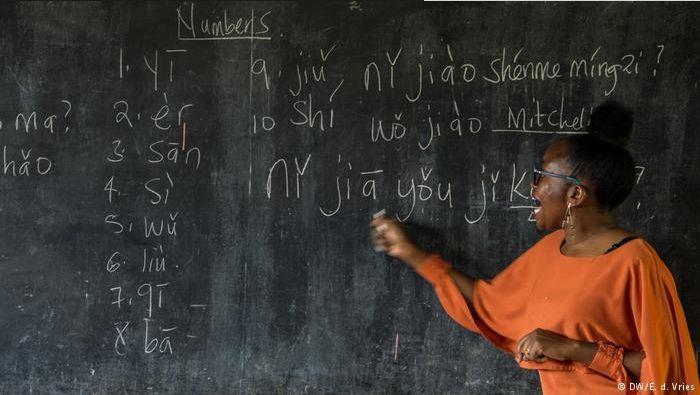 Numbers.
1. yī
2. èr
3 sān
4. sì
5. wǔ
6. liù.
7. qī
8 bā
9. jiǔ
10 shí
ma?
hǎo
nǐ jiào shénme míngzi?
wǒ jiào Mitchell
nǐ jiā yǒu jǐ ?
© DW/E. d. Vries